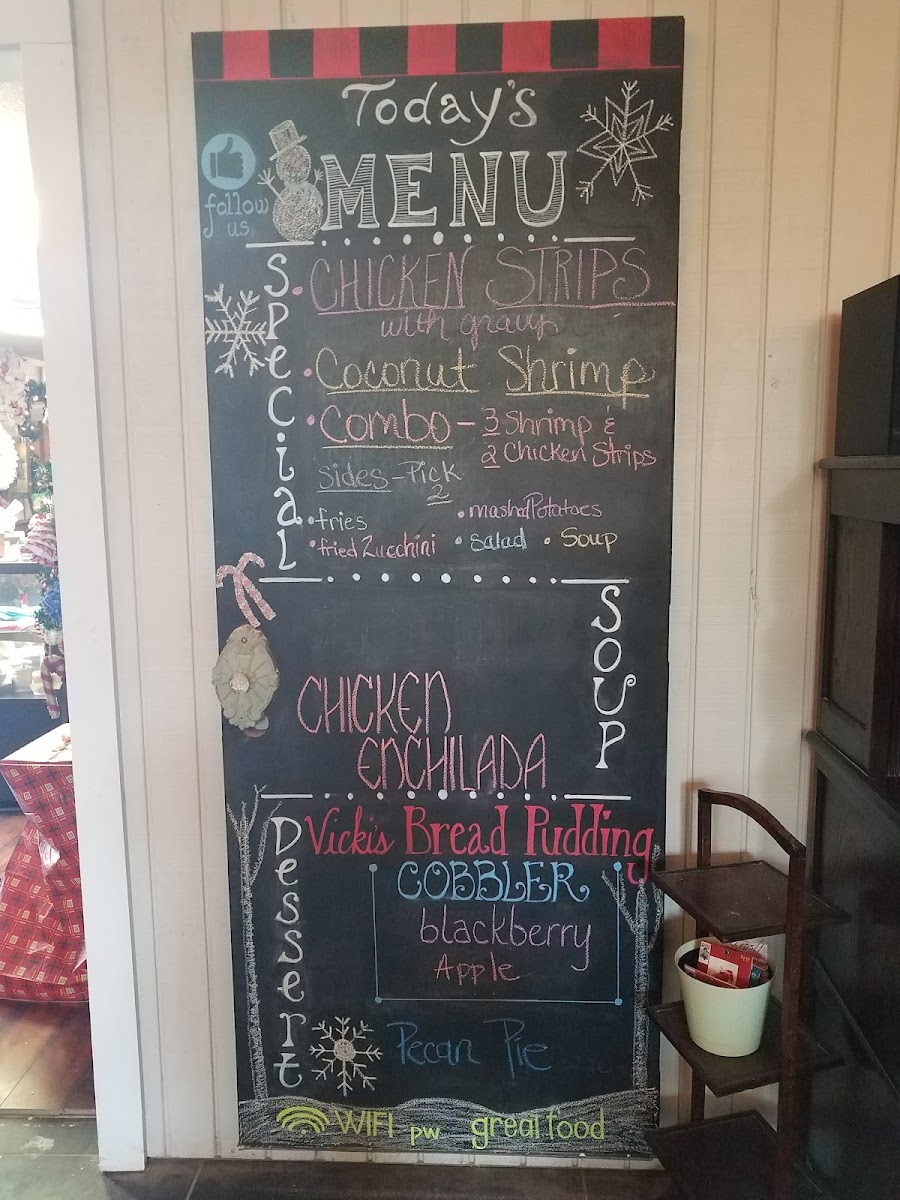 Today's
MENU
follow
us
Special
• CHICKEN STRIPS
with gravy
• Coconut Shrimp
• Combo - 3 Shrimp &
2 Chicken Strips
Sides - Pick
2
• fries
• mashed Potatoes
• fried Zucchini
• Salad
• Soup
SOUP
CHICKEN
ENCHILADA
Dessert
Vicki's Bread Pudding
COBBLER
blackberry
Apple
Pecan Pie
WIFI pw great food